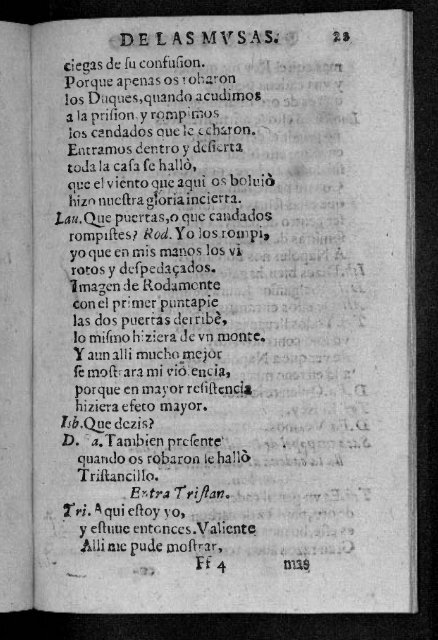 DE LAS MVSAS. 22
ciegas de ſu confuſion.
Porque apenas os robaron
los Duques, quando acudimos
a la priſion, y rompimos
los candados que le echaron.
Entramos dentro y deſierta
toda la caſa ſe hallò,
que el viento que aqui os boluiò
hizo nueſtra gloria incierta.
Lau. Que puertas, o que candados
rompiſtes? Rod. Yo los rompi,
yo que en mis manos los vi
rotos y deſpedaçados.
Imagen de Rodamonte
con el primer puntapie
las dos puertas derribè,
lo miſmo hiziera de vn monte.
Y aun alli mucho mejor
ſe moſtrara mi violencia,
porque en mayor reſiſtencia
hiziera efeto mayor.
Iſb. Que dezis?
D. a. Tambien preſente
quando os robaron ſe hallò
Triſtancillo.
Entra Triſtan.
Tri. Aqui eſtoy yo,
y eſtuue entonces. Valiente
Alli me pude moſtrar,
Ff 4 mas